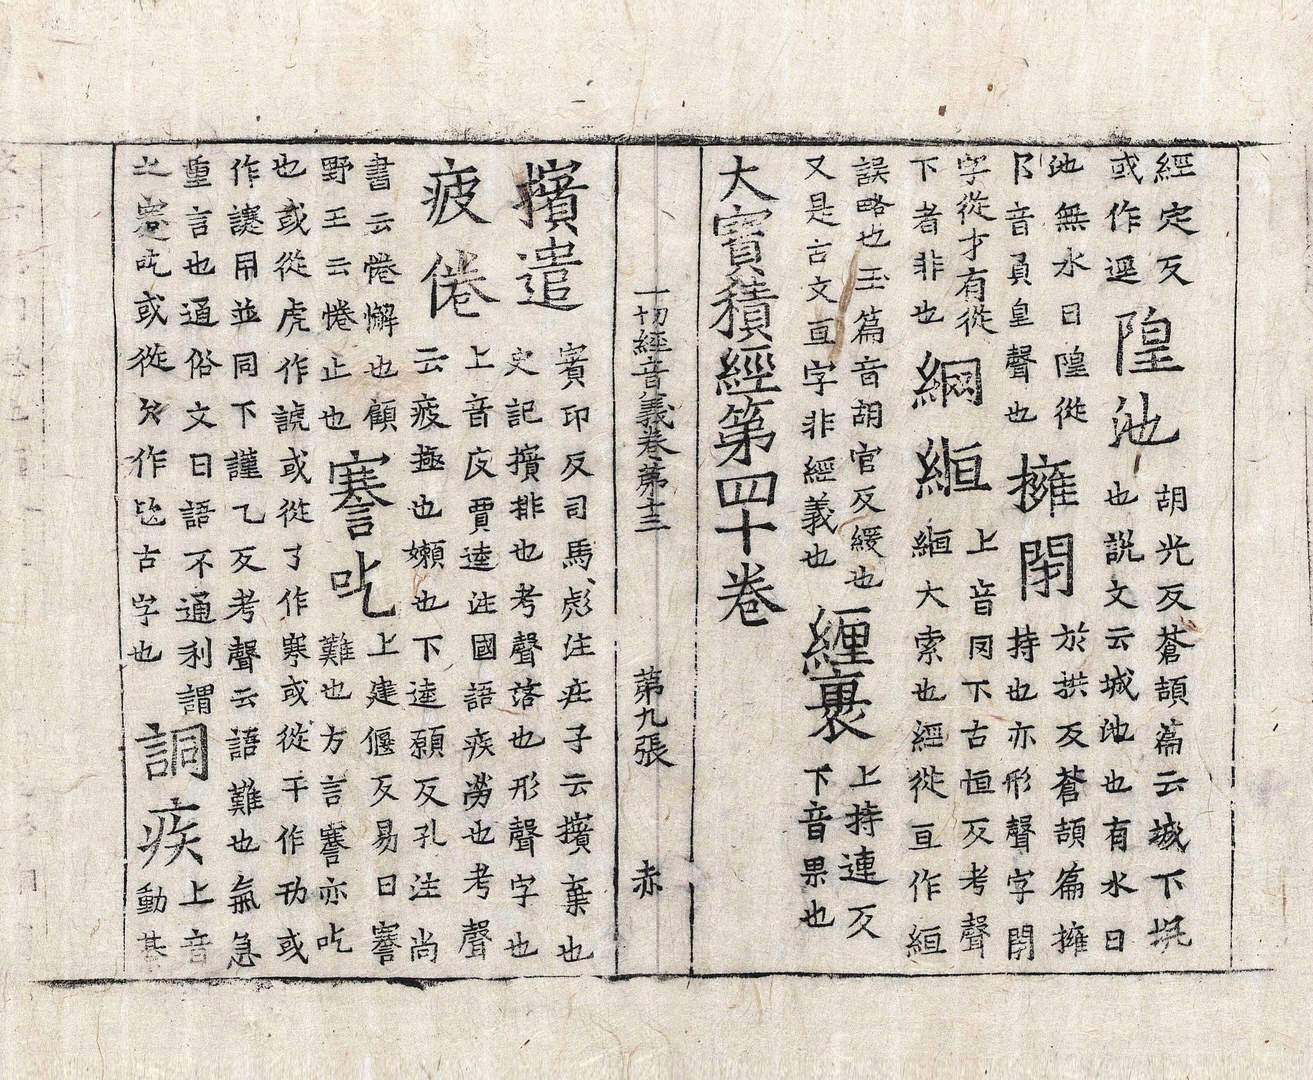 經定反
或作逕
隍池
胡光反蒼頡篇云城下坑
也說文云城池也有水曰
池無水曰隍從
阝音員皇聲也
擁閉
於拱反蒼頡篇擁
持也亦形聲字閉
字從才有從
下者非也
綱縆
上音罔下古恒反考聲
縆大索也經從亘作絙
誤略也玉篇音胡官反緩也
又是古文亘字非經義也
纏裹
上持連反
下音果也
大寶積經第四十卷
一切經音義卷第十三 第九張 赤
擯遣
賓印反司馬彪注庄子云擯棄也
史記擯排也考聲落也形聲字也
疲倦
上音皮賈逵注國語疾勞也考聲
云疲極也嬾也下逵願反孔注尚
書云惓懈也顧
野王云惓止也
謇吃
上建偃反易曰謇
難也方言謇亦吃
也或從虎作謔或從了作寒或從干作或
作用並同下謹乙反考聲云語難也氣急
重言也通俗文曰語不通利謂
之謇吃或從欠作古字也
詷疾
上音
動甚